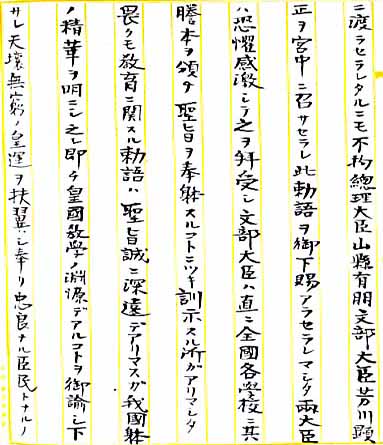 ニ渡ラセラレタルニモ不拘總理大臣山縣有朋文部大臣芳川顕
正ヲ宮中ニ召サセラレ此勅語ヲ御下賜アラセラレマシタ兩大臣
ハ恐懼感激シテ之ヲ拜受シ文部大臣ハ直ニ全國各學校ニ其
謄本ヲ頒チ聖旨ヲ奉躰スルコトニツキ訓示スル所ガアリマシタ
畏クモ教育ニ関スル勅語ハ聖旨誠ニ深遠デアリマスガ我國躰
ノ精華ヲ明ニシ之レ即チ皇國教學ノ淵源デアルコトヲ御諭シ下
サレ天壌無窮ノ皇運ヲ扶翼シ奉リ忠良ナル臣民トナルノ